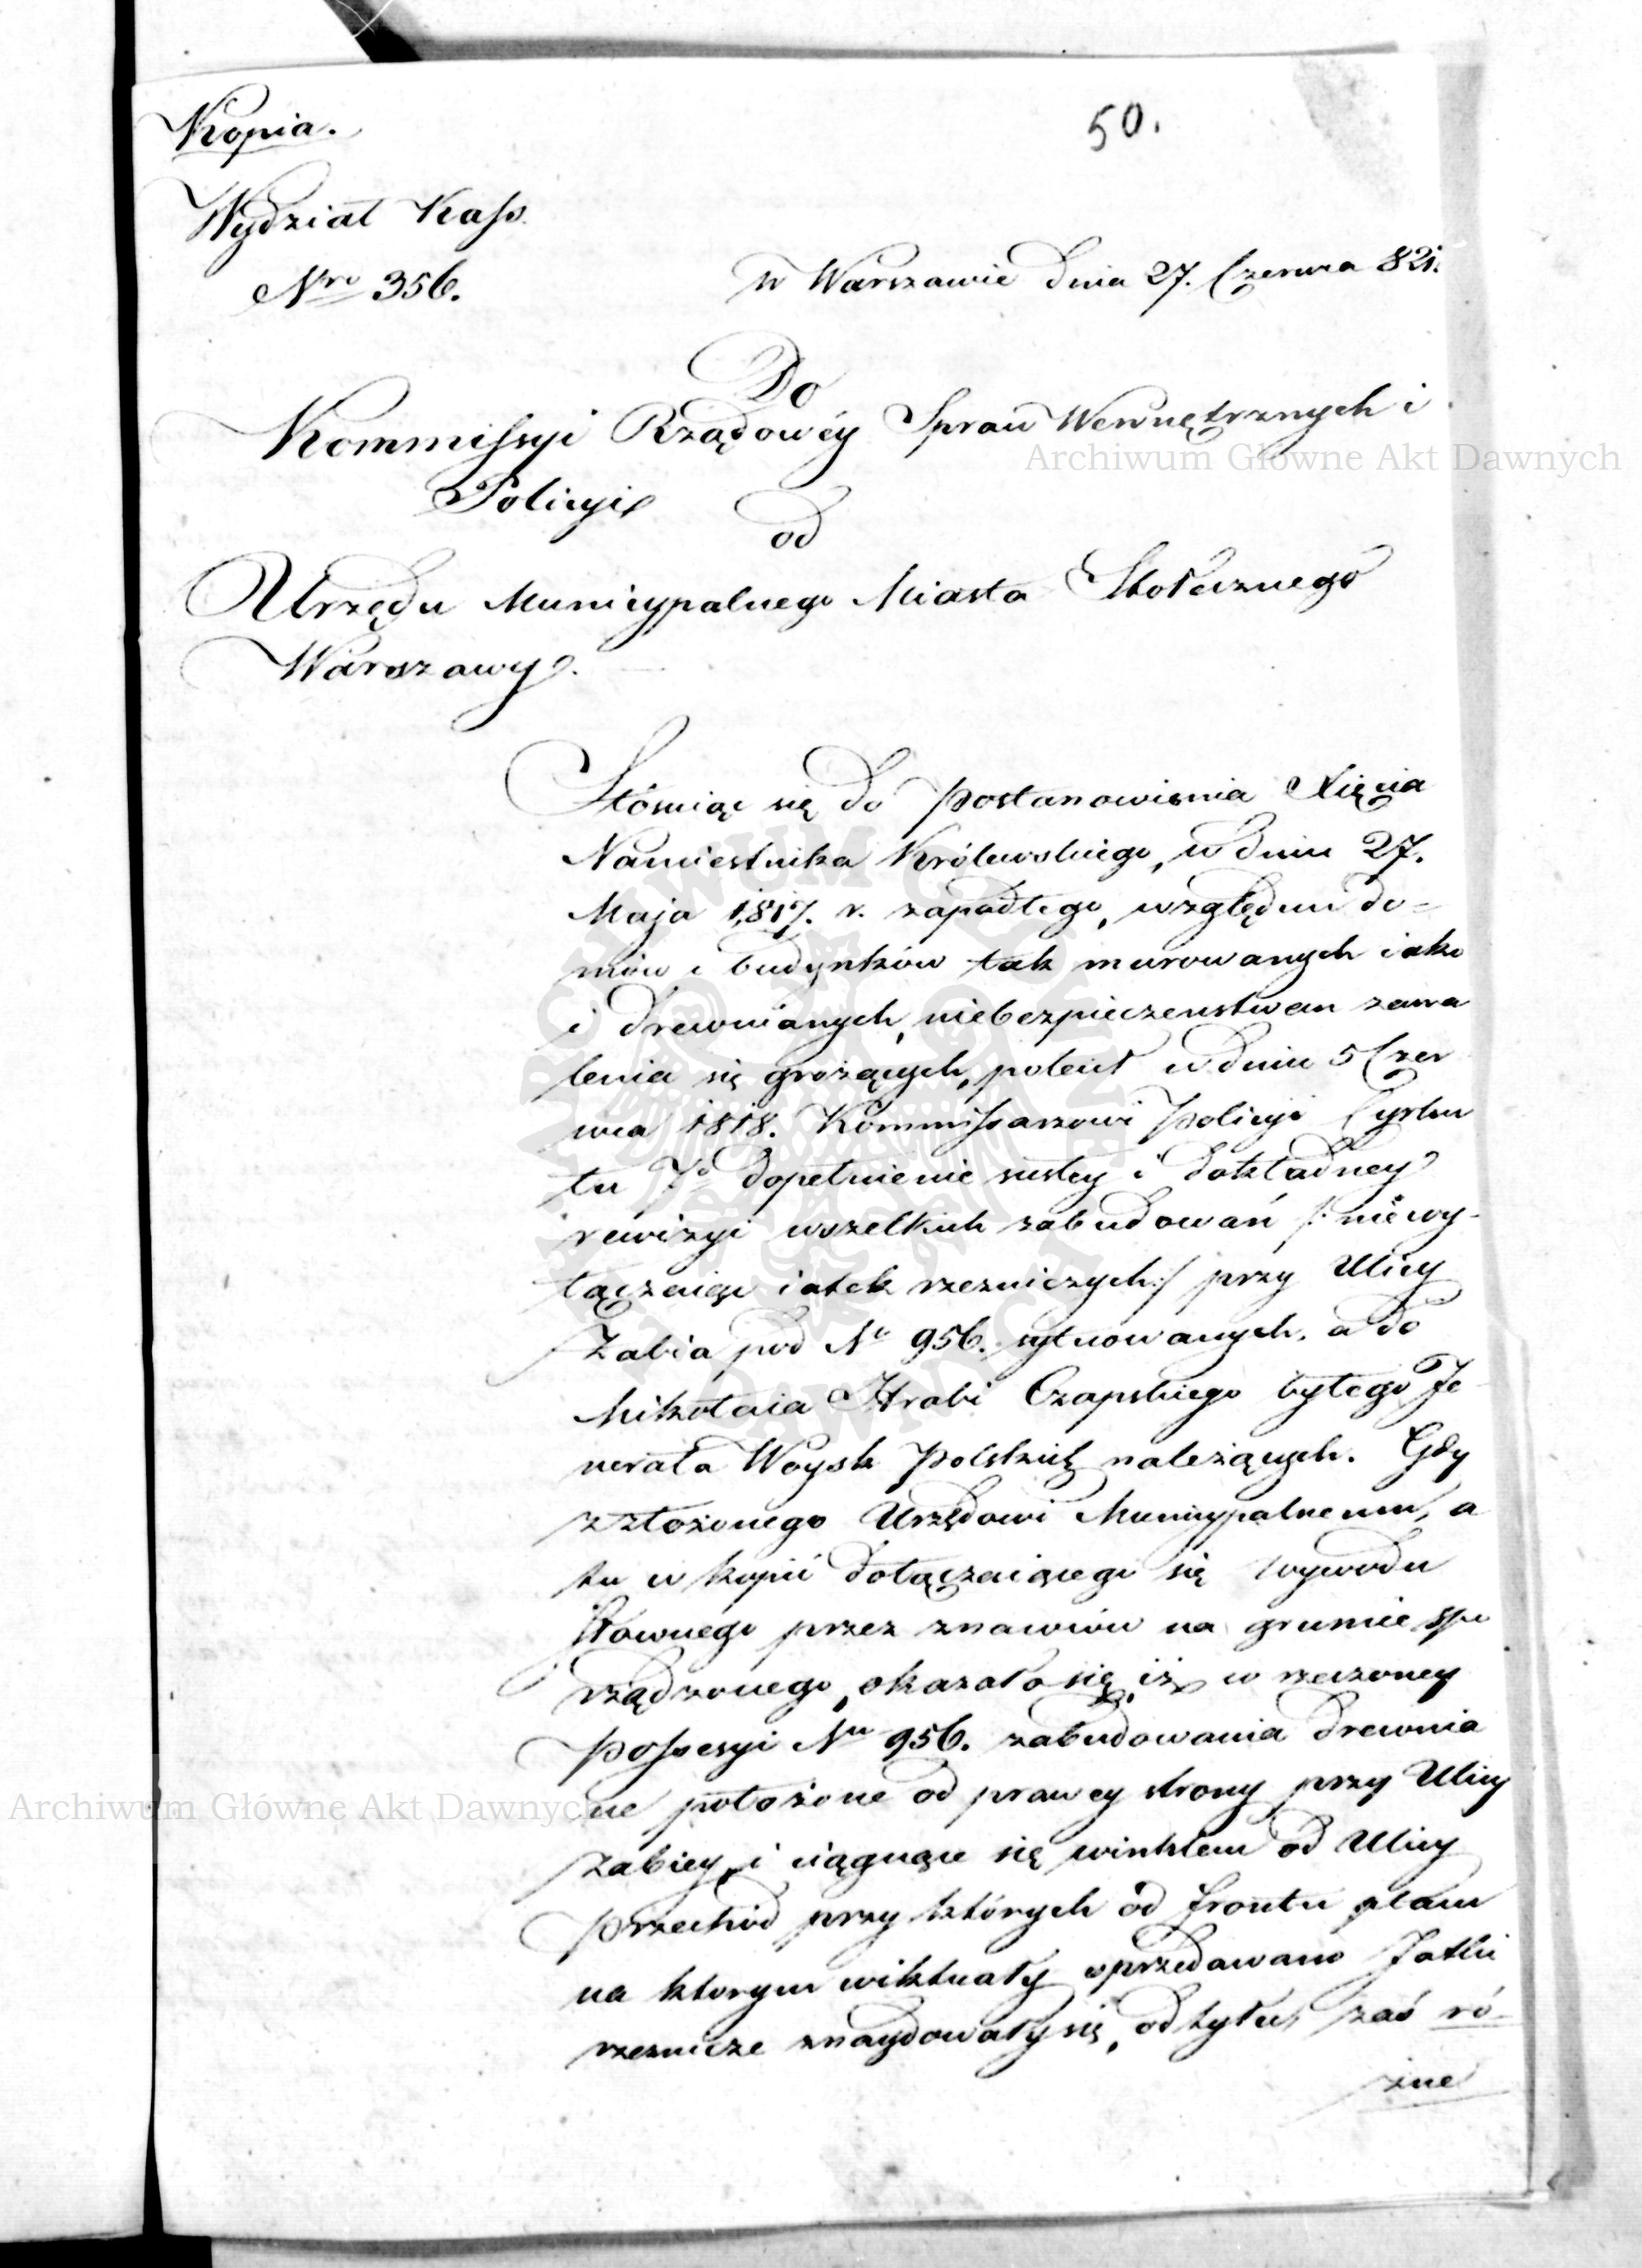 Kopia.
50.
Wydział Kass.
Nro 356.
w Warszawie dnia 27. Czerwca 821.
Do
Kommissyi Rządowéy Spraw Wewnętrznych i
Policyi
od
Urzędu Municypalnego Miasta Stołecznego
Warszawy.
Stósuiąc się do postanowienia Xięcia
Namiestnika Królewskiego, w dniu 27.
Maja 1817. r. zapadłego, względem do=
mów i budynków tak murowanych iako
i drewnianych, niebezpieczenstwem zawa
lenia się grożących, polecił w dniu 5 Czer
wca 1818. Kommissarzowi Policyi Cyrku
łu 7o dopełnienie scisłey i dokładney
rewizyi wszelkich zabudowań /: niewy-
łączaiąc iatek rzezniczych :/ przy Ulicy
Żabia pod No 956. sytuowanych, a do
Mikołaia Hrabi Czapskiego byłego Je-
nerała Woysk Polskich należących. Gdy
z złożonego Urzędowi Municypalnemu, a
tu w kopii dołączaiącego się wywodu
słownego przez znawców na gruncie spo
rządzonego, okazało się, iż w rzeczoney
Possesyi Nro 956. zabudowania drewnia
ne położone od prawey strony przy Ulicy
Żabiey, i ciągnące się winklem od Ulicy
Przechód przy których od frontu placu
na ktorym wiktuały sprzedawano Jatki
rzeznicze znaydowały się, od tyłu zaś ró-
żne
Archiwum Główne Akt Dawnych
Archiwum Główne Akt Dawnych
ARCHIWUM GŁÓWNE AKT DAWNYCH